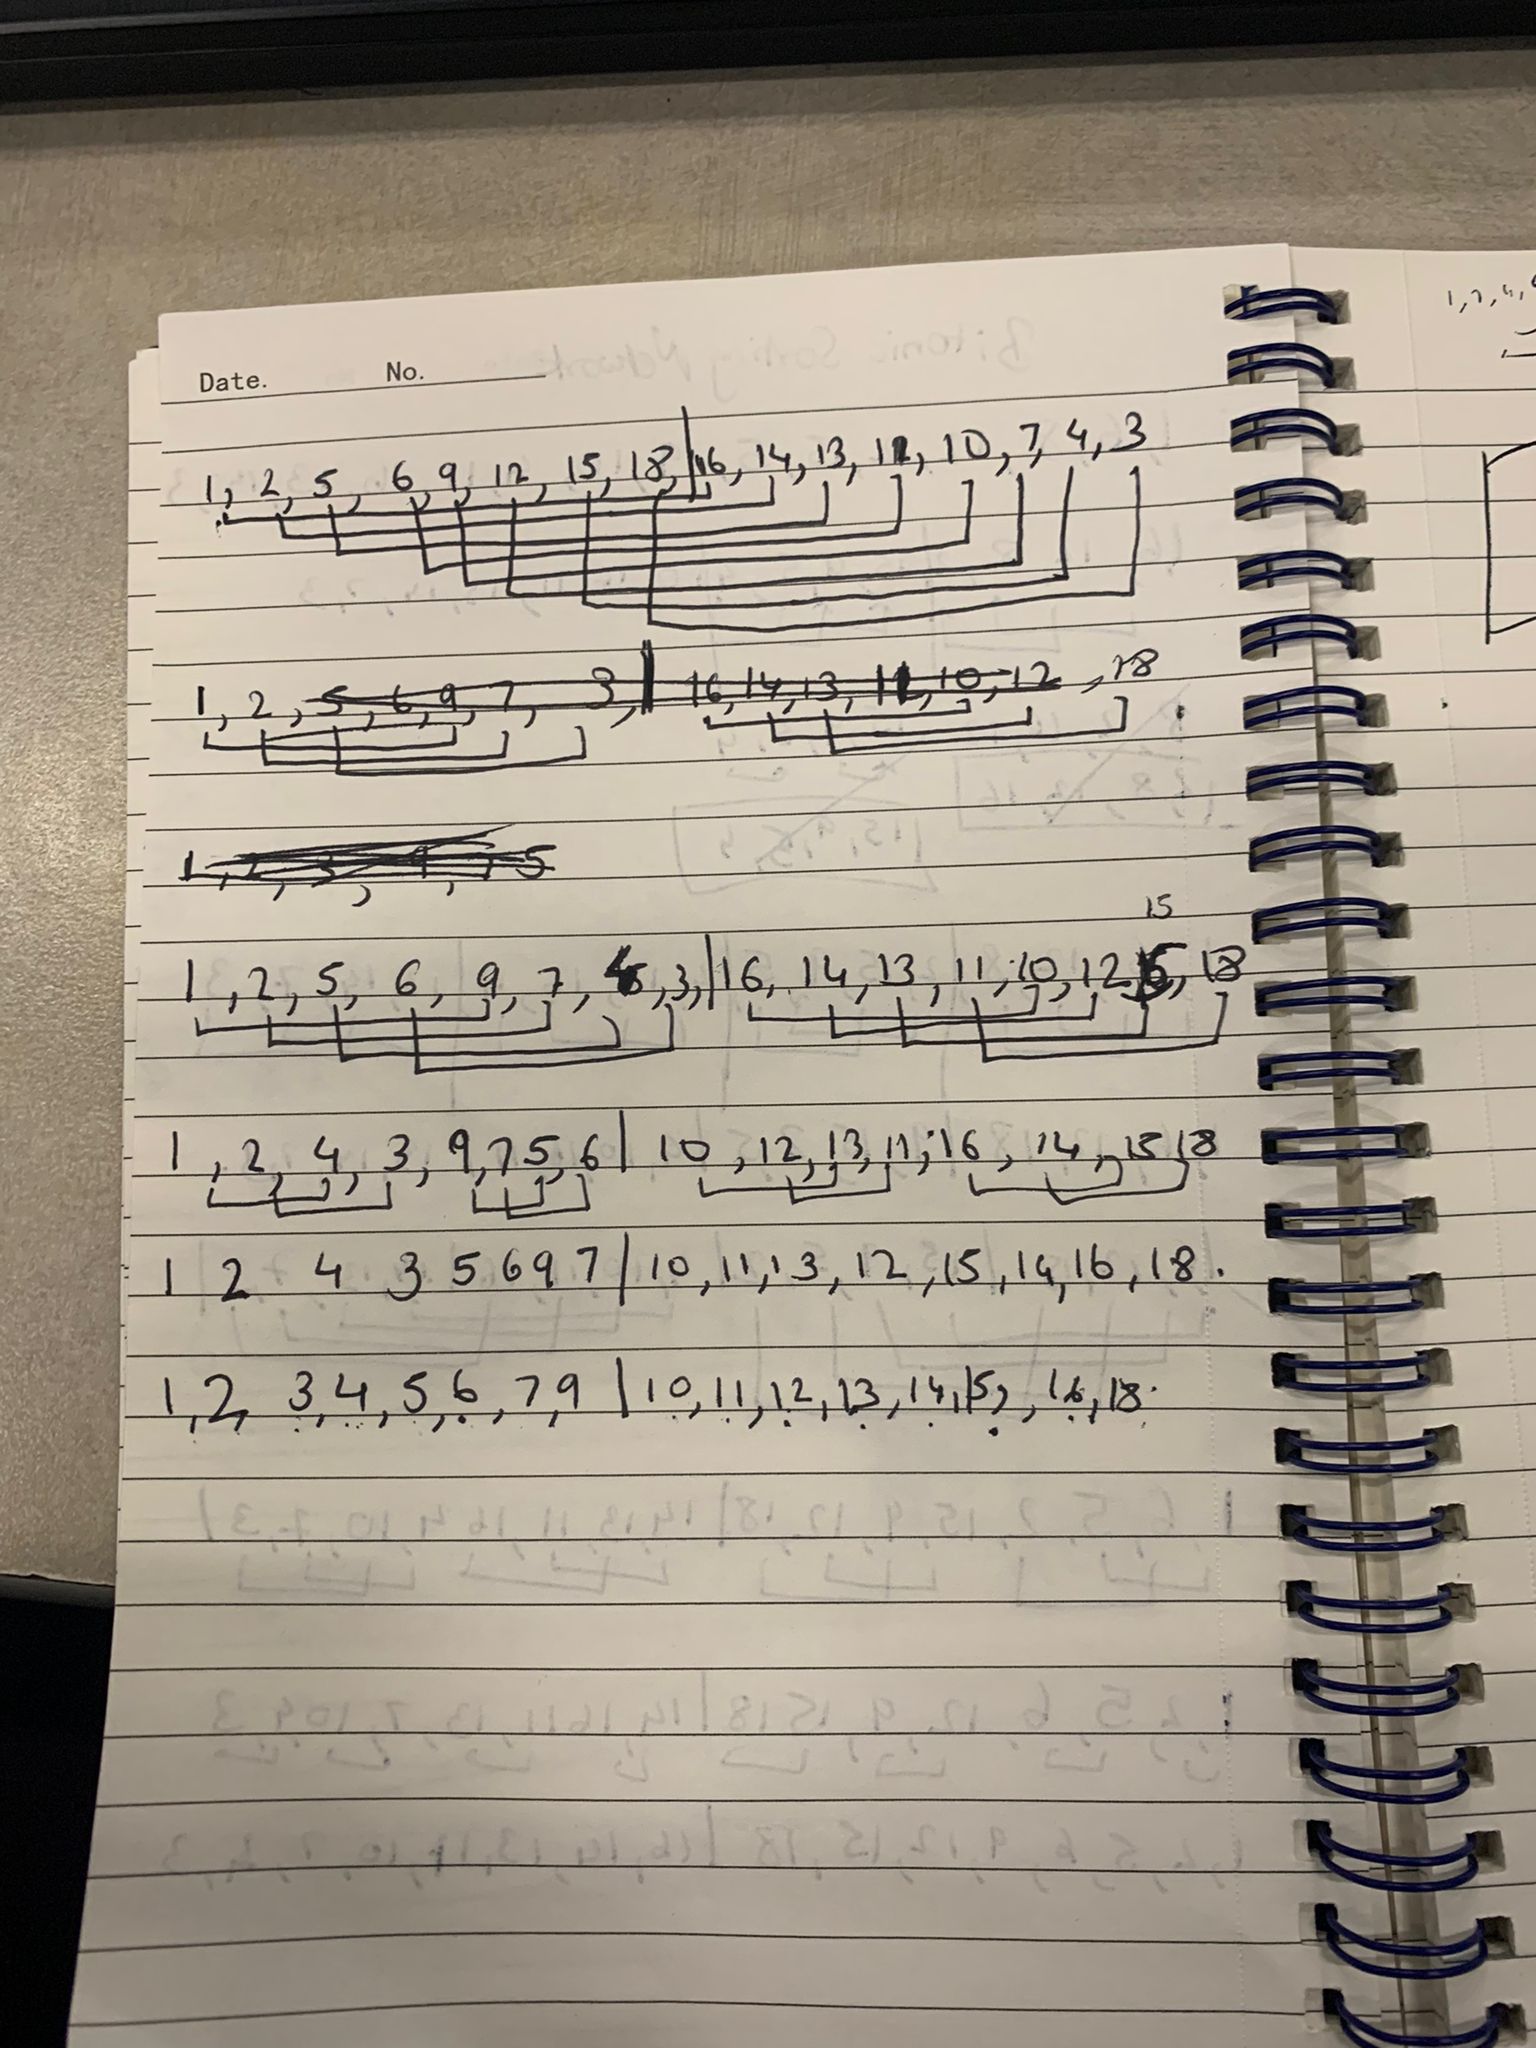 Date. No.
1, 2, 5, 6, 9, 12, 15, 18, | 16, 14, 13, 11, 10, 7, 4, 3
1, 2, 5, 6, 9, 7, 3, | 16, 14, 13, 11, 10, 12, 18
1, 2, 3, 9, 7 5
15
1, 2, 5, 6, 9, 7, 4, 3, | 16, 14, 13, 11, 10, 12, 15, 18
1, 2, 4, 3, 9, 7 5, 6 | 10, 12, 13, 11, 16, 14, 15 18
1 2 4 3 5 6 9 7 | 10, 11, 13, 12, 15, 14, 16, 18.
1, 2, 3, 4, 5, 6, 7, 9 | 10, 11, 12, 13, 14, 15, , 16, 18.